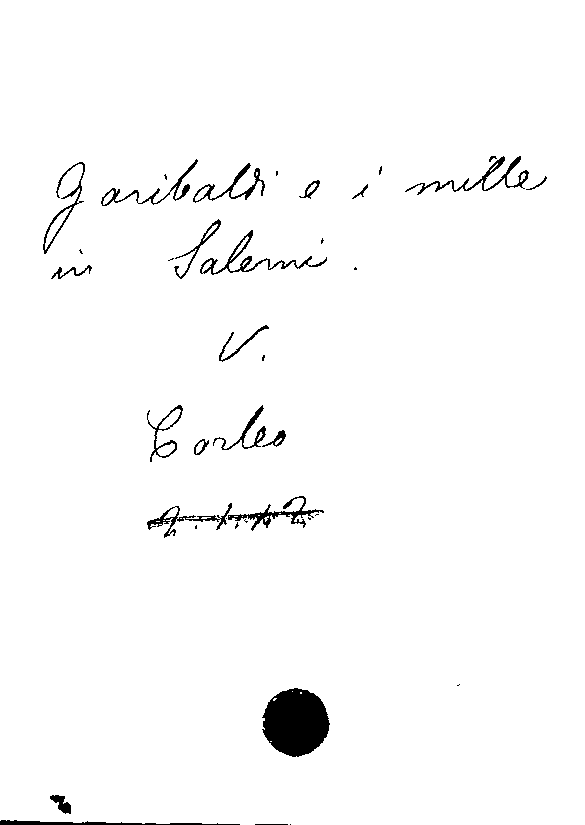 Garibaldi e i mille
in Salemi.
V.
Corleo